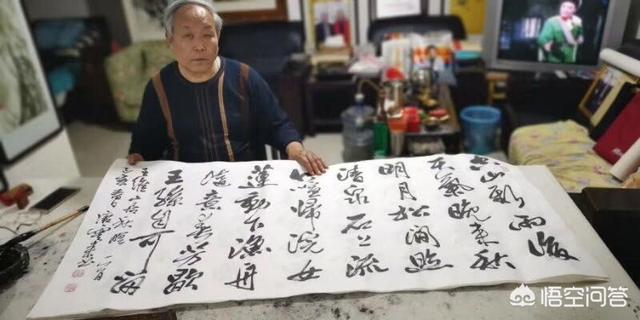 空山新雨後
天氣晚来秋
明月松間照
清泉石上流
竹喧歸浣女
蓮動下漁舟
隨意春芳歇
王孫自可留
王維山居秋暝
悟空问答